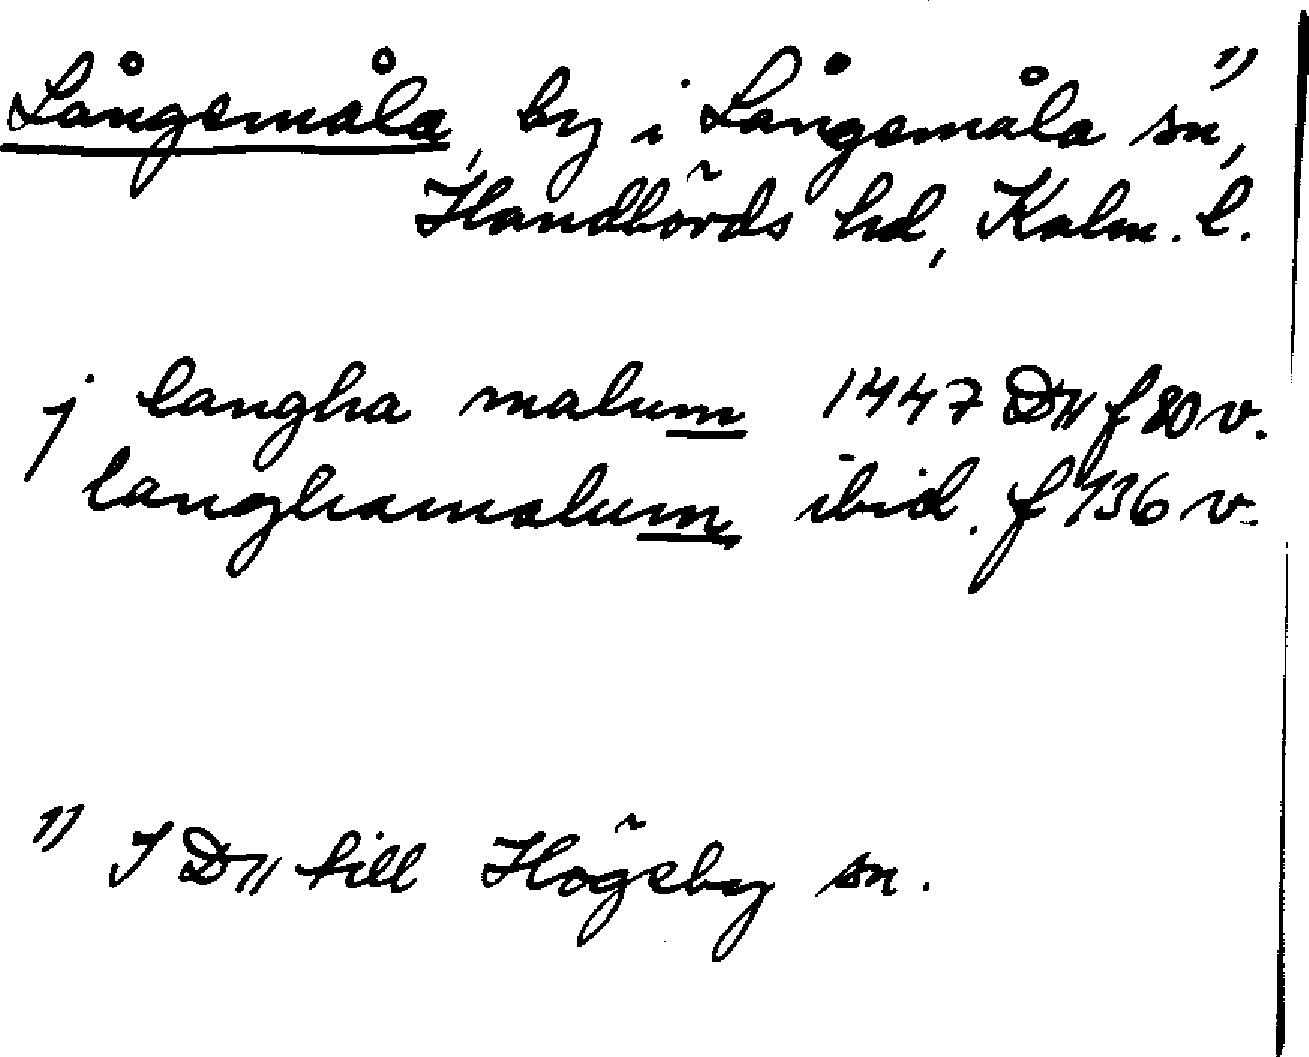 Långemåla, by i Långemåla sn¹⁾,
Handbörds hd, Kalm. l.
j langha malum 1447 D11 f 80 v.
langhamalum, ibid. f 136 v.
¹⁾ I D11 till Högsby sn.